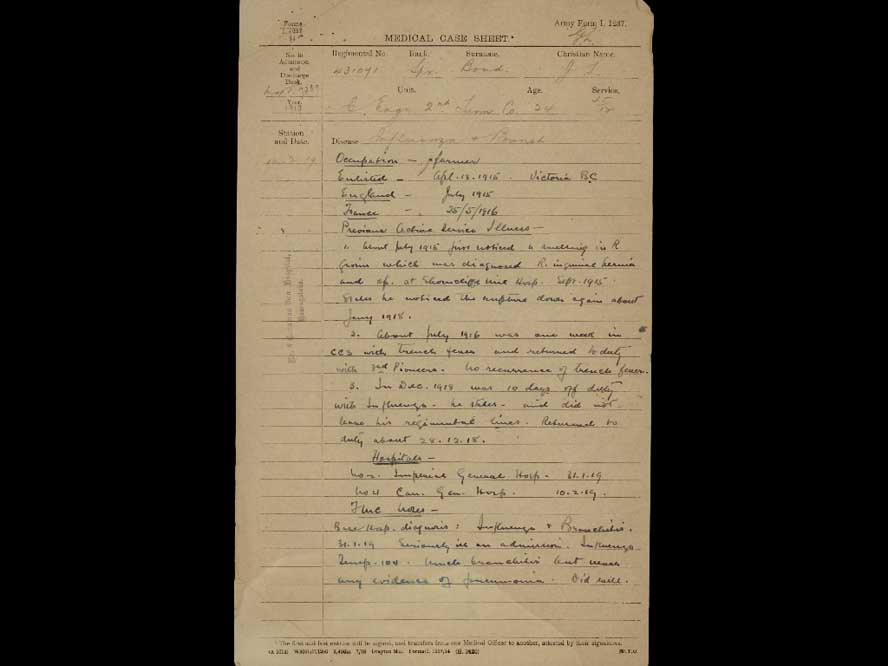 Forms
I. 1237
Army Form I. 1237.
MEDICAL CASE SHEET.*
No. in Admission and Discharge Book.
Regimental No. Rank. Surname. Christian Name.
431091 Spr. Bond. J
Year. 1919
Unit. Age. Service.
C. Eng. 2nd Co. 24
Station and Date.
Disease Influenza + Bronch
Occupation — farmer
Enlisted — Apl. 13. 1915. Victoria B.C
England — July 1915
France — 25/5/1916
Previous Active Service Illness —
1. About July 1915 first noticed a swelling in R
Groin which was diagnosed R. inguinal hernia
and op. at Shorncliffe Mil Hosp. Sept. 1915.
States he noticed the rupture down again about
Jany 1918.
2. About July 1916 was one week in
CCS with trench fever and returned to duty
with 3rd Pioneers. No recurrence of trench fever.
3. In Dec. 1918 was 10 days off duty
with Influenza - he states - and did not
leave his regimental lines. Returned to
duty about 28.12.18.
Hospitals —
No 2. Imperial General Hosp - 31.1.19
No 4 Can. Gen. Hosp. 10.2.19.
Notes —
Base Hosp. diagnosis: Influenza & Bronchitis.
31.1.19 Seriously ill on admission. Influenza.
Temp. 104. Much bronchitis but never
any evidence of pneumonia. Did well.
* The first and last entries will be signed, and transfers from one Medical Officer to another, attested by their signatures.